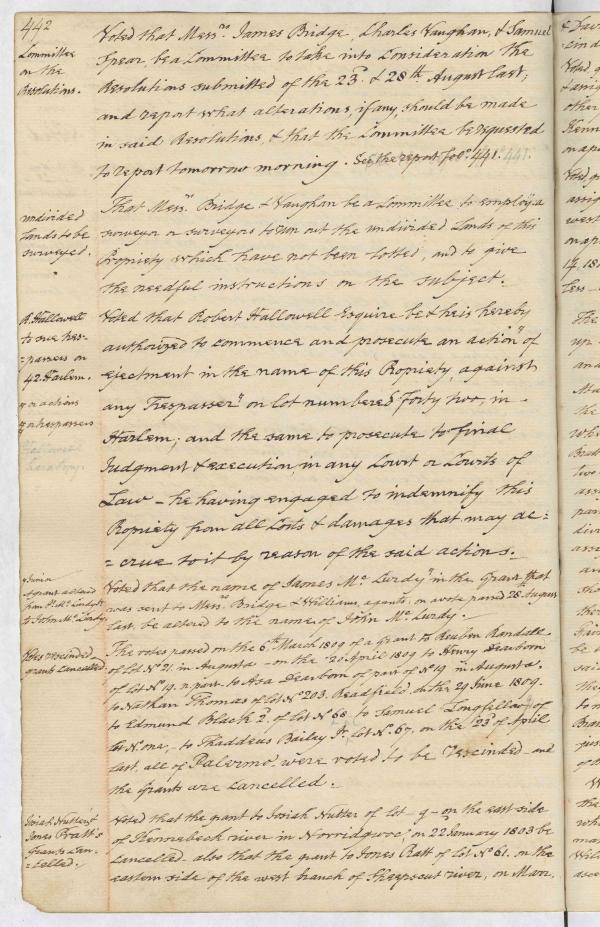 442
Committee
on the
Resolutions.
Voted that Mess.rs James Bridge, Charles Vaughan, & Samuel
Spear, be a Committee to take into Consideration the
Resolutions submitted of the 23.d & 28th August last;
and report what alterations, if any, should be made
in said Resolutions, & that the Committee be requested
to report tomorrow morning. See the report fol.o 441.
undivided
lands to be
surveyed.
That Mess.rs Bridge & Vaughan be a Committee to employ a
surveyor or surveyors to run out the undivided Lands of this
Propriety which have not been lotted, and to give
the needful instructions on the subject.
R. Hallowell
to sue tres-
=passers on
42 Harlem.
or actions
or trespassers
Voted that Robert Hallowell Esquire be & he is hereby
authorized to commence and prosecute an action of
ejectment in the name of this Propriety, against
any Trespasser on lot numbered forty two, in
Harlem; and the same to prosecute to final
Judgment & execution, in any Court or Courts of
Law – he having engaged to indemnify this
Propriety from all Costs & damages that may ac=
=crue to it by reason of the said actions.
a grant altered
from Js. Mc. Curdy
to John Mc. Curdy.
Voted that the name of James Mc. Curdy in the Grant that
was sent to Mess.rs Bridge & Williams, agents, on a vote passed 28th August
last, be altered to the name of John Mc. Curdy.
Votes rescinded
grants Cancelled.
The votes passed on the 6th March 1809 of a grant to Reuben Randall
of Lot No. 21, in Augusta – on the 20 April 1809 to Henry Dearborn
of lot No. 19, to Asa Dearborn of part of No. 19 in Augusta,
to Nathan Thomas of Lot No. 203, Readfield, on the 29 June 1809.
to Edmund Black 2d. of Lot No. 68, to Samuel Longfellow of
lot No. one, to Thaddeus Bailey Jr. Lot No. 67, on the 23d of April
last, all of Palermo, were voted to be rescinded and
the Grants are Cancelled.
Josiah Nutter &
Jones Pratt's
Grants Can-
=celled.
Voted that the grant to Josiah Nutter of Lot – 9 – on the east side
of Kennebeck river in Norridgwoc, on 22 January 1803 be
Cancelled – also that the grant to Jones Pratt of Lot No. 61. on the
eastern side of the west branch of Sheepscut river, on Mar.